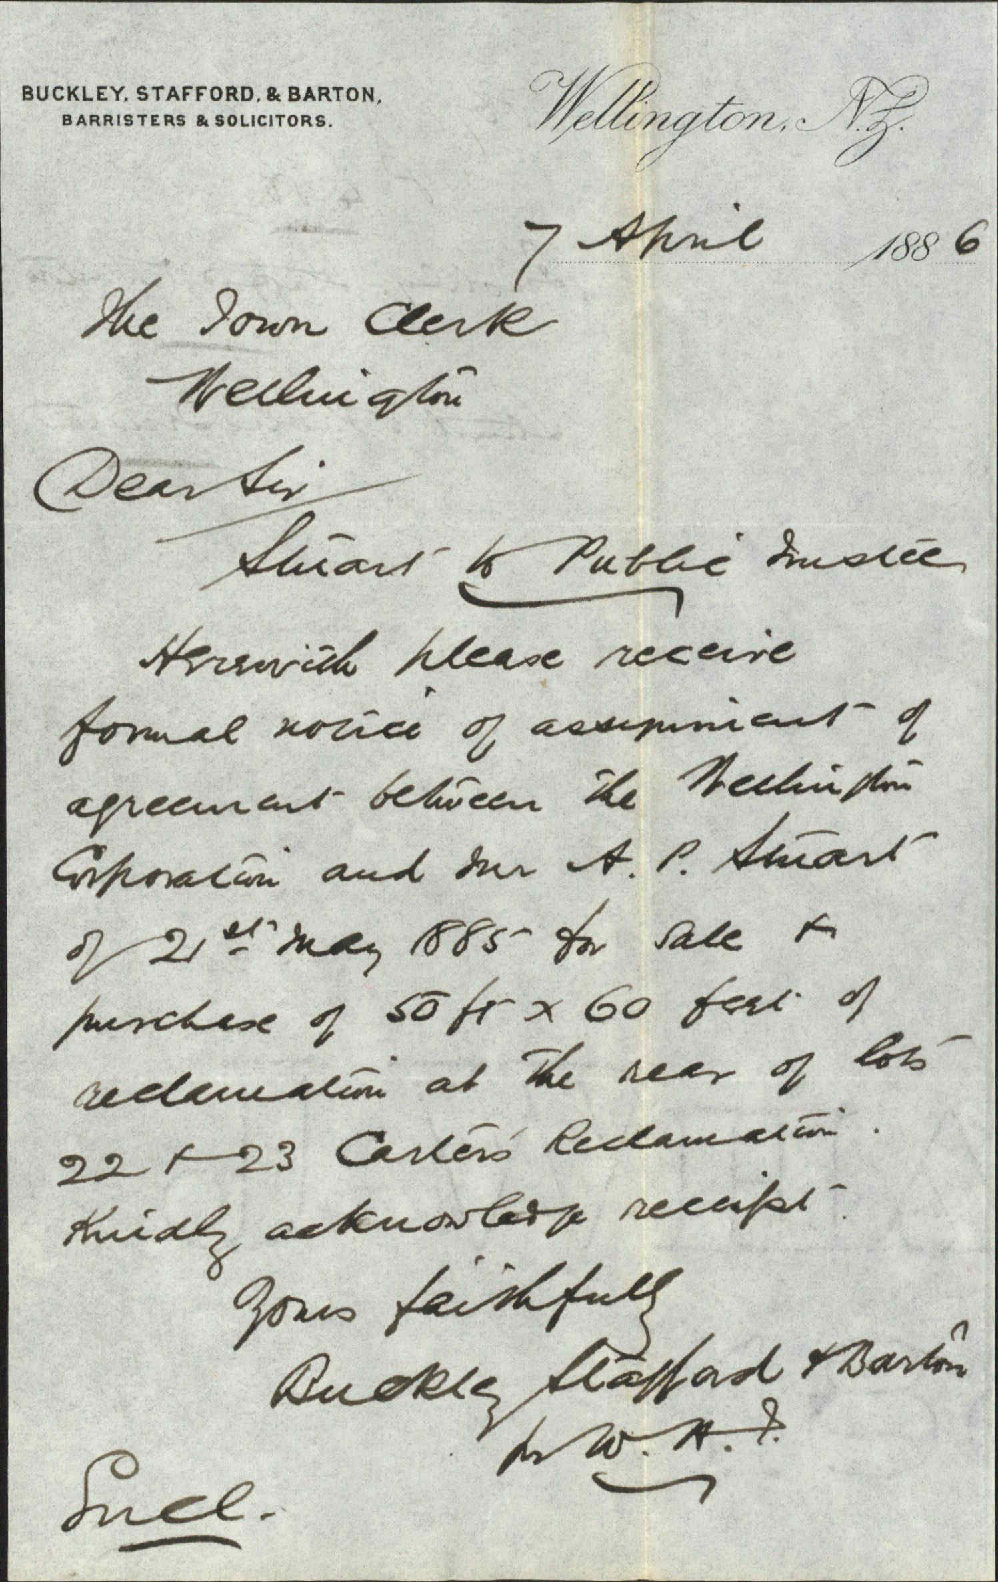 BUCKLEY, STAFFORD, & BARTON,
BARRISTERS & SOLICITORS.
Wellington, N.Z.
7 April 1886
The Town Clerk
Wellington
Dear Sir
Stuart to Public Trustee
Herewith please receive
formal notice of assignment of
agreement between the Wellington
Corporation and Mr A. P. Stuart
of 21st May 1885 for sale &
purchase of 50 ft x 60 feet of
reclamation at the rear of lots
22 & 23 Carters Reclamation.
Kindly acknowledge receipt.
Yours faithfully
Buckley Stafford & Barton
pr W. H. J.
Encl.